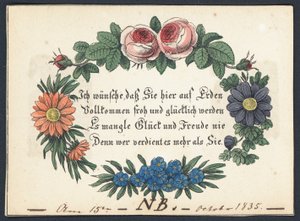 Ich wünsche, daß Sie hier auf Erden
Vollkommen froh und glücklich werden
Es mangle Glück und Freude nie
Denn wer verdient es mehr als Sie.
15ten NB. October 1835.